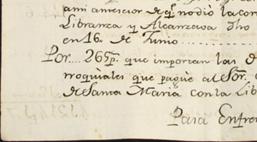 ami antecior de qe nodio la con
Libranza y Alcanzava Dho
en 16 de Junio
Por... 265p. que importan las d
rroquiales que pagùe al Sor.
de Santa Maria con la Lib
Para Enfre